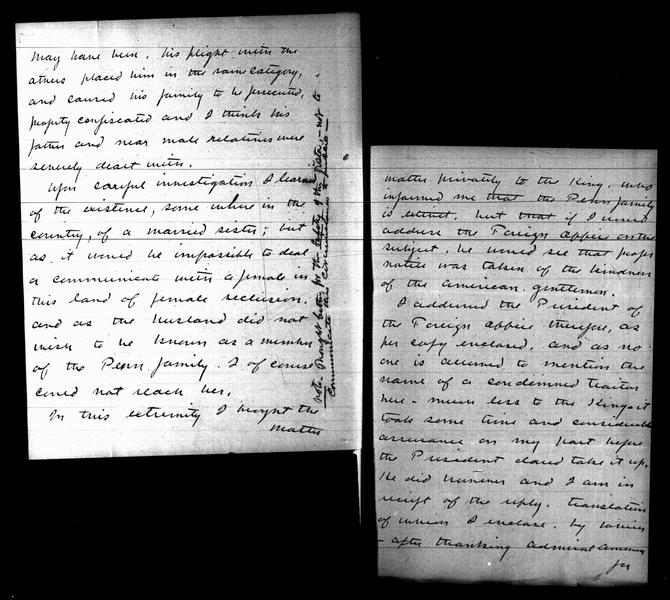 may have been, his flight with the
others placed him in the same category,
and caused his family to be persecuted,
property confiscated and I think his
father and near male relatives were
severely dealt with.
Upon careful investigation I learned
of the existence, some where in the
country, of a married sister; but
as it would be impossible to deal
or communicate with a female in
this land of female reclusion,
and as the husband did not
wish to be known as a member
of the Penn family. I of course
could not reach her.
In this extremity I brought the
matter
Note: thought better for the safety of the sister - not to
communicate this
matter privately to the King, who
informed me that the Penn family
is extinct, but that if I would
address the Foreign office on the
subject, he would see that proper
notice was taken of the kindness
of the American gentlemen.
I addressed the President of
the Foreign office therefore, as
per copy enclosed, and as no
one is allowed to mention the
name of a condemned traitor
here - much less to the King - it
took some time and considerable
assurance on my part before
the President dared take it up.
He did however and I am in
receipt of the reply, translation
of which I enclose, by which
- after thanking Admiral Ammen
for